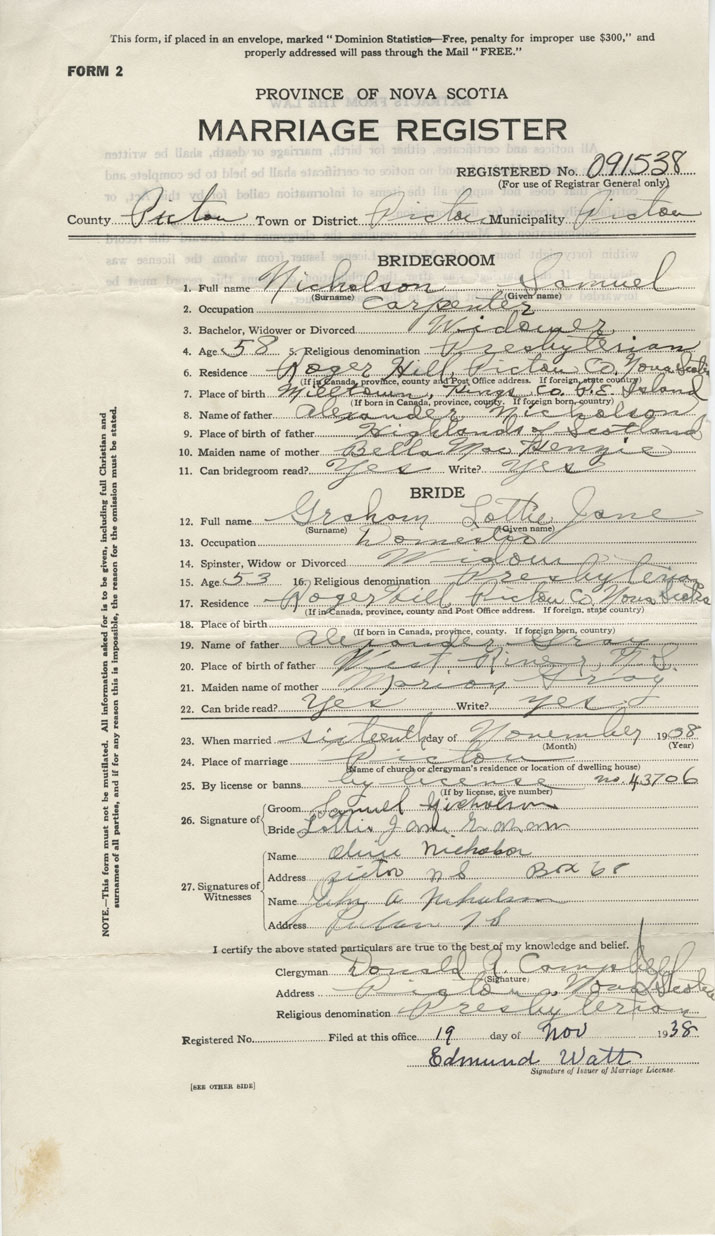 This form, if placed in an envelope, marked "Dominion Statistics—Free, penalty for improper use $300," and
properly addressed will pass through the Mail "FREE."
FORM 2
PROVINCE OF NOVA SCOTIA
MARRIAGE REGISTER
REGISTERED No. 091538
(For use of Registrar General only)
County Pictou Town or District Pictou Municipality Pictou
BRIDEGROOM
1. Full name Nicholson Samuel
(Surname) (Given name)
2. Occupation Carpenter
3. Bachelor, Widower or Divorced Widower
4. Age 58 5. Religious denomination Presbyterian
6. Residence Roger Hill, Pictou Co, Nova Scotia
(If in Canada, province, county and Post Office address. If foreign, state country)
7. Place of birth Milltown, Kings Co. P.E. Island
(If born in Canada, province, county. If foreign born, country)
8. Name of father Alexander Nicholson
9. Place of birth of father Highlands of Scotland
10. Maiden name of mother Bella MacKenzie
11. Can bridegroom read? Yes Write? Yes
BRIDE
12. Full name Graham Lottie Jane
(Surname) (Given name)
13. Occupation Domestic
14. Spinster, Widow or Divorced Widow
15. Age 53 16. Religious denomination Presbyterian
17. Residence Roger Hill, Pictou Co, Nova Scotia
(If in Canada, province, county and Post Office address. If foreign, state country)
18. Place of birth
(If born in Canada, province, county. If foreign born, country)
19. Name of father Alexander Gray
20. Place of birth of father West River, N.S.
21. Maiden name of mother Marion Gray
22. Can bride read? Yes Write? yes
23. When married sixteenth day of November 1938
(Month) (Year)
24. Place of marriage Pictou
(Name of church or clergyman's residence or location of dwelling house)
25. By license or banns by license no. 43706
(If by license, give number)
26. Signature of
Groom Samuel Nicholson
Bride Lottie Jane Graham
27. Signatures of Witnesses
Name Nicholson
Address Pictou NS Box 68
Name John A Nicholson
Address
I certify the above stated particulars are true to the best of my knowledge and belief.
Clergyman Donald A. Campbell
(Signature)
Address Pictou, Nova Scotia
Religious denomination Presbyterian
Registered No. Filed at this office 19 day of Nov 1938
Edmund Watt
Signature of Issuer of Marriage License.
[SEE OTHER SIDE]
NOTE.—This form must not be mutilated. All information asked for is to be given, including full Christian and
surnames of all parties, and if for any reason this is impossible, the reason for the omission must be stated.